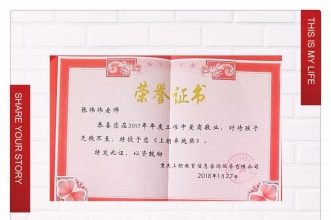 THIS IS MY LIFE
荣誉证书
张炜炜老师
恭喜您在2017年年度工作中爱岗敬业,对待孩子
无微不至,特授予您《上朝卓越奖》
特发此证,以资鼓励
重庆上朝教育信息咨询服务有限公司
2018年1月27日
SHARE YOUR STORY